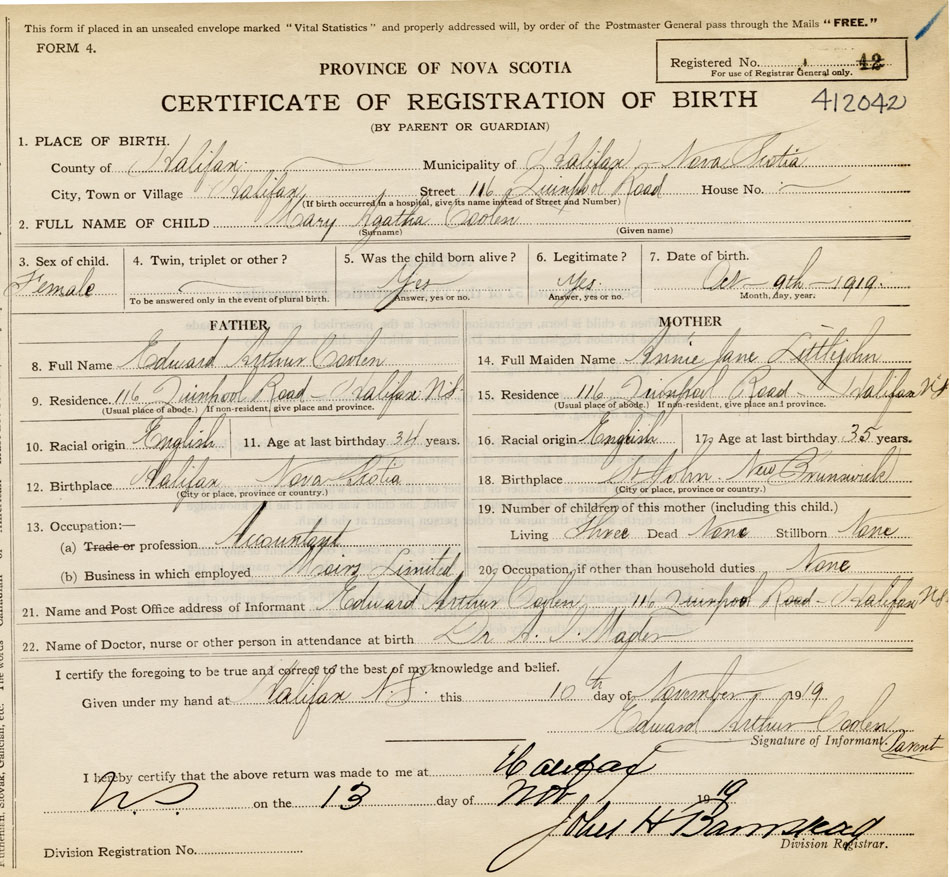 This form if placed in an unsealed envelope marked "Vital Statistics" and properly addressed will, by order of the Postmaster General pass through the Mails "FREE."
FORM 4.
Registered No. 42
For use of Registrar General only.
PROVINCE OF NOVA SCOTIA
412042
CERTIFICATE OF REGISTRATION OF BIRTH
(BY PARENT OR GUARDIAN)
1. PLACE OF BIRTH.
County of Halifax Municipality of Halifax - Nova Scotia
City, Town or Village Halifax Street 116 Quinpool Road House No.
(If birth occurred in a hospital, give its name instead of Street and Number)
2. FULL NAME OF CHILD Mary Agatha Coolen
(Surname) (Given name)
3. Sex of child. 4. Twin, triplet or other? 5. Was the child born alive? 6. Legitimate? 7. Date of birth.
Female Yes Yes Oct - 9th - 1919.
To be answered only in the event of plural birth. Answer, yes or no. Answer, yes or no. Month, day, year.
FATHER MOTHER
8. Full Name Edward Arthur Coolen 14. Full Maiden Name Annie Jane Littlejohn
9. Residence. 116 Quinpool Road - Halifax N.S. 15. Residence 116 Quinpool Road - Halifax N.S
(Usual place of abode.) If non-resident, give place and province. (Usual place of abode.) If non-resident, give place and province.
10. Racial origin English 11. Age at last birthday 34 years. 16. Racial origin English 17. Age at last birthday 35 years.
12. Birthplace Halifax Nova Scotia 18. Birthplace St John New Brunswick
(City or place, province or country.) (City or place, province or country.)
13. Occupation:— 19. Number of children of this mother (including this child.)
(a) Trade or profession Accountant Living Three Dead None Stillborn None
(b) Business in which employed Moirs Limited 20. Occupation, if other than household duties None
21. Name and Post Office address of Informant Edward Arthur Coolen 116 Quinpool Road - Halifax N.S.
22. Name of Doctor, nurse or other person in attendance at birth Dr. Mader
I certify the foregoing to be true and correct to the best of my knowledge and belief.
Given under my hand at Halifax N.S. this 10th day of November 1919
Edward Arthur Coolen
Signature of Informant. Parent
I hereby certify that the above return was made to me at Halifax
N.S. on the 13 day of Nov 1919
John H Barnstead
Division Registrar.
Division Registration No.